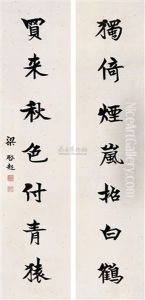 獨倚煙嵐招白鶴
買來秋色付青猿
梁啟超